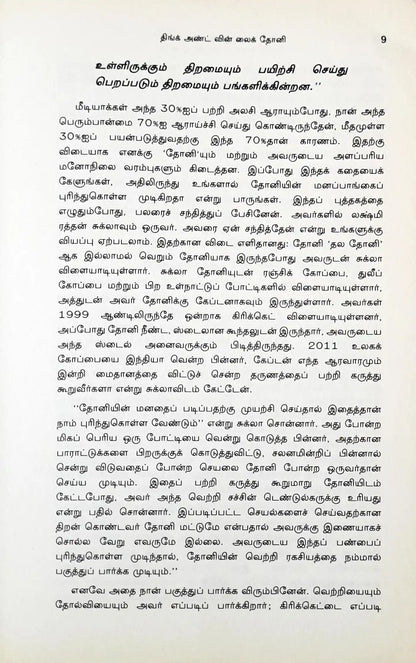 திங்க் அண்ட் வின் லைக் தோனி 9
உள்ளிருக்கும் திறமையும் பயிற்சி செய்து
பெறப்படும் திறமையும் பங்களிக்கின்றன.''
மீடியாக்கள் அந்த 30%ஐப் பற்றி அலசி ஆராயும்போது, நான் அந்த
பெரும்பான்மை 70%ஐ ஆராய்ச்சி செய்து கொண்டிருந்தேன், மீதமுள்ள
30%ஐப் பயன்படுத்துவதற்கு இந்த 70%தான் காரணம். இதற்கு
விடையாக எனக்கு 'தோனி'யும் மற்றும் அவருடைய அளப்பரிய
மனோநிலை வரம்புகளும் கிடைத்தன. இப்போது இந்தக் கதையைக்
கேளுங்கள், அதிலிருந்து உங்களால் தோனியின் மனப்பாங்கைப்
புரிந்துகொள்ள முடிகிறதா என்று பாருங்கள். இந்தப் புத்தகத்தை
எழுதும்போது, பலரைச் சந்தித்துப் பேசினேன். அவர்களில் லக்ஷ்மி
ரத்தன் சுக்லாவும் ஒருவர். அவரை ஏன் சந்தித்தேன் என்று உங்களுக்கு
வியப்பு ஏற்படலாம். இதற்கான விடை எளிதானது: தோனி 'தல தோனி'
ஆக இல்லாமல் வெறும் தோனியாக இருந்தபோது அவருடன் சுக்லா
விளையாடியுள்ளார். சுக்லா தோனியுடன் ரஞ்சிக் கோப்பை, துலீப்
கோப்பை மற்றும் பிற உள்நாட்டுப் போட்டிகளில் விளையாடியுள்ளார்,
அத்துடன் அவர் தோனிக்கு கேப்டனாகவும் இருந்துள்ளார். அவர்கள்
1999 ஆண்டிலிருந்தே ஒன்றாக கிரிக்கெட் விளையாடியுள்ளனர்,
அப்போது தோனி நீண்ட, ஸ்டைலான கூந்தலுடன் இருந்தார், அவருடைய
அந்த ஸ்டைல் அனைவருக்கும் பிடித்திருந்தது. 2011 உலகக்
கோப்பையை இந்தியா வென்ற பின்னர், கேப்டன் எந்த ஆரவாரமும்
இன்றி மைதானத்தை விட்டுச் சென்ற தருணத்தைப் பற்றி கருத்து
கூறுவீர்களா என்று சுக்லாவிடம் கேட்டேன்.
''தோனியின் மனதைப் படிப்பதற்கு முயற்சி செய்தால் இதைத்தான்
நாம் புரிந்துகொள்ள வேண்டும்'' என்று சுக்லா சொன்னார். அது போன்ற
மிகப் பெரிய ஒரு போட்டியை வென்று கொடுத்த பின்னர், அதற்கான
பாராட்டுக்களை பிறருக்குக் கொடுத்துவிட்டு, சலனமின்றிப் பின்னால்
சென்று விடுவதைப் போன்ற செயலை தோனி போன்ற ஒருவர்தான்
செய்ய முடியும். இதைப் பற்றி கருத்து கூறுமாறு தோனியிடம்
கேட்டபோது, அவர் அந்த வெற்றி சச்சின் டெண்டுல்கருக்கு உரியது
என்று பதில் சொன்னார். இப்படிப்பட்ட செயல்களைச் செய்வதற்கான
திறன் கொண்டவர் தோனி மட்டுமே என்பதால் அவருக்கு இணையாகச்
சொல்ல வேறு எவருமே இல்லை. அவருடைய இந்தப் பண்பைப்
புரிந்துகொள்ள முடிந்தால், தோனியின் வெற்றி ரகசியத்தை நம்மால்
பகுத்துப் பார்க்க முடியும்.''
எனவே அதை நான் பகுத்துப் பார்க்க விரும்பினேன். வெற்றியையும்
தோல்வியையும் அவர் எப்படிப் பார்க்கிறார்; கிரிக்கெட்டை எப்படி